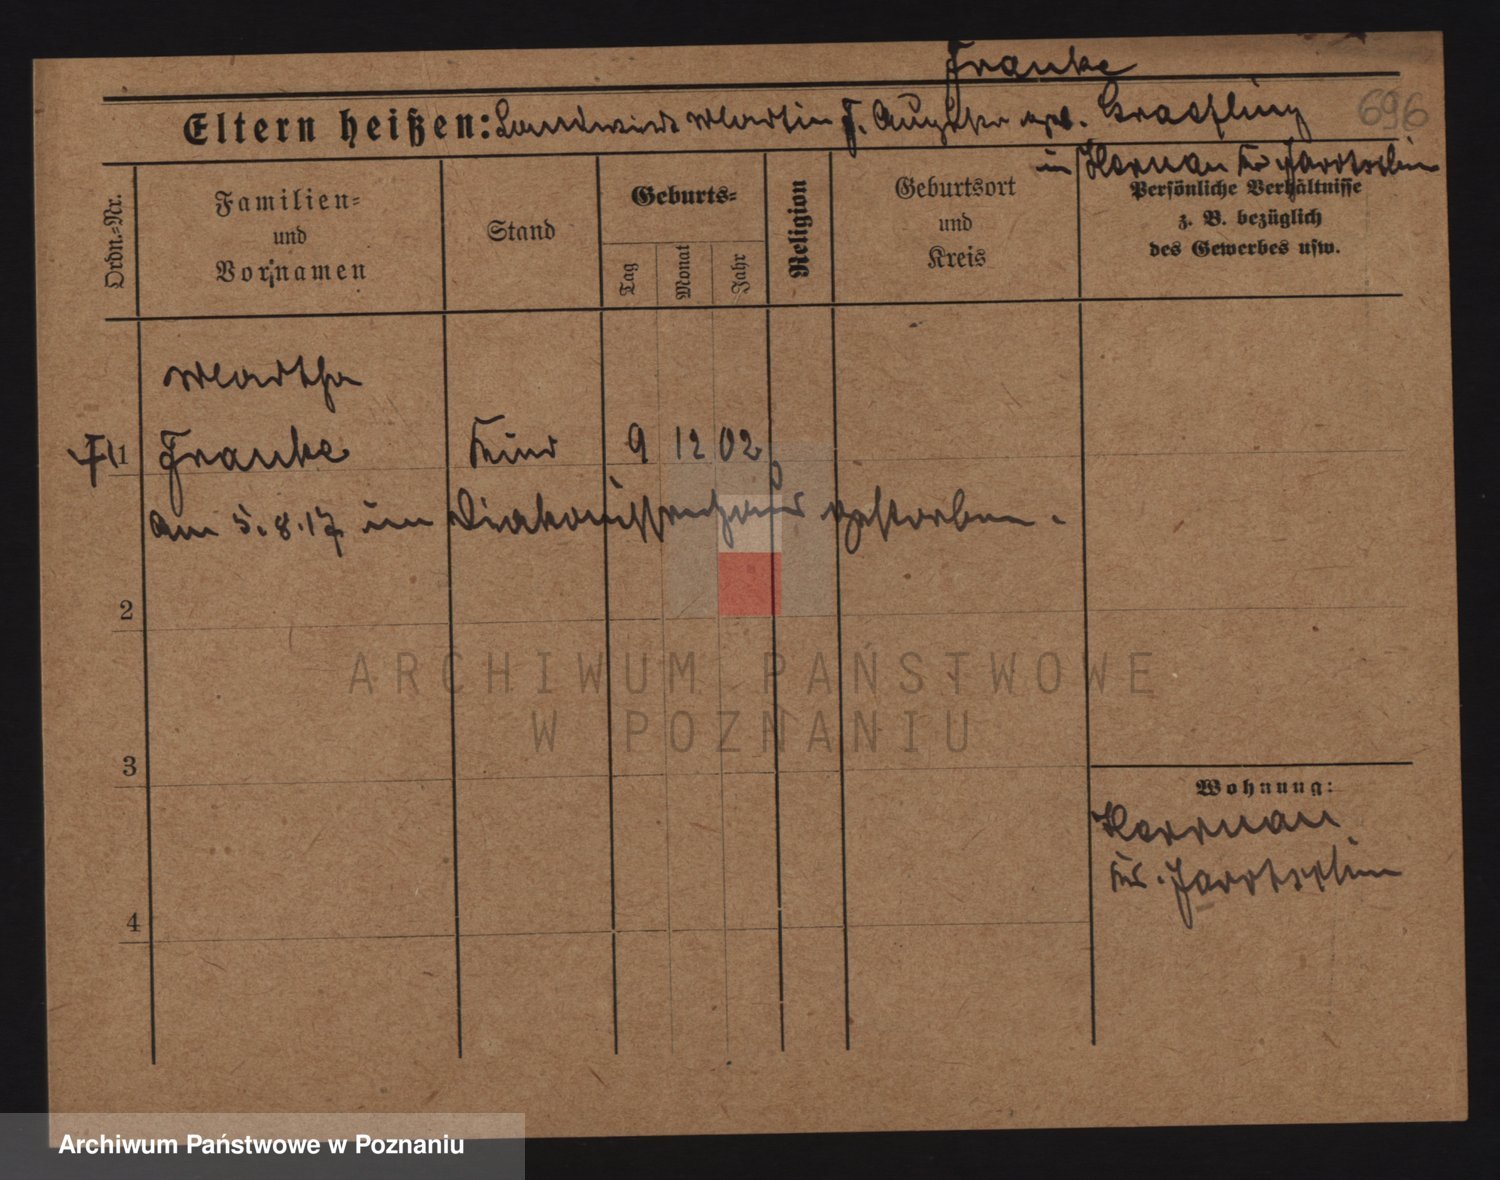 Franke
Eltern heißen: Landwirt Martin F. Auguste geb. Grasfling
696
in Hernau Kr. Jarotschin
Ordn.=Nr.
Familien=
und
Vornamen
Stand
Geburts=
Tag
Monat
Jahr
Religion
Geburtsort
und
Kreis
Persönliche Verhältnisse
z. B. bezüglich
des Gewerbes usw.
Martha
1 Franke Kind 9 12 02
am 5.8.17 im Diakonissenhaus gestorben.
2
ARCHIWUM PAŃSTWOWE
W POZNANIU
3
Wohnung:
Hernau
Kr. Jarotschin
4
Archiwum Państwowe w Poznaniu